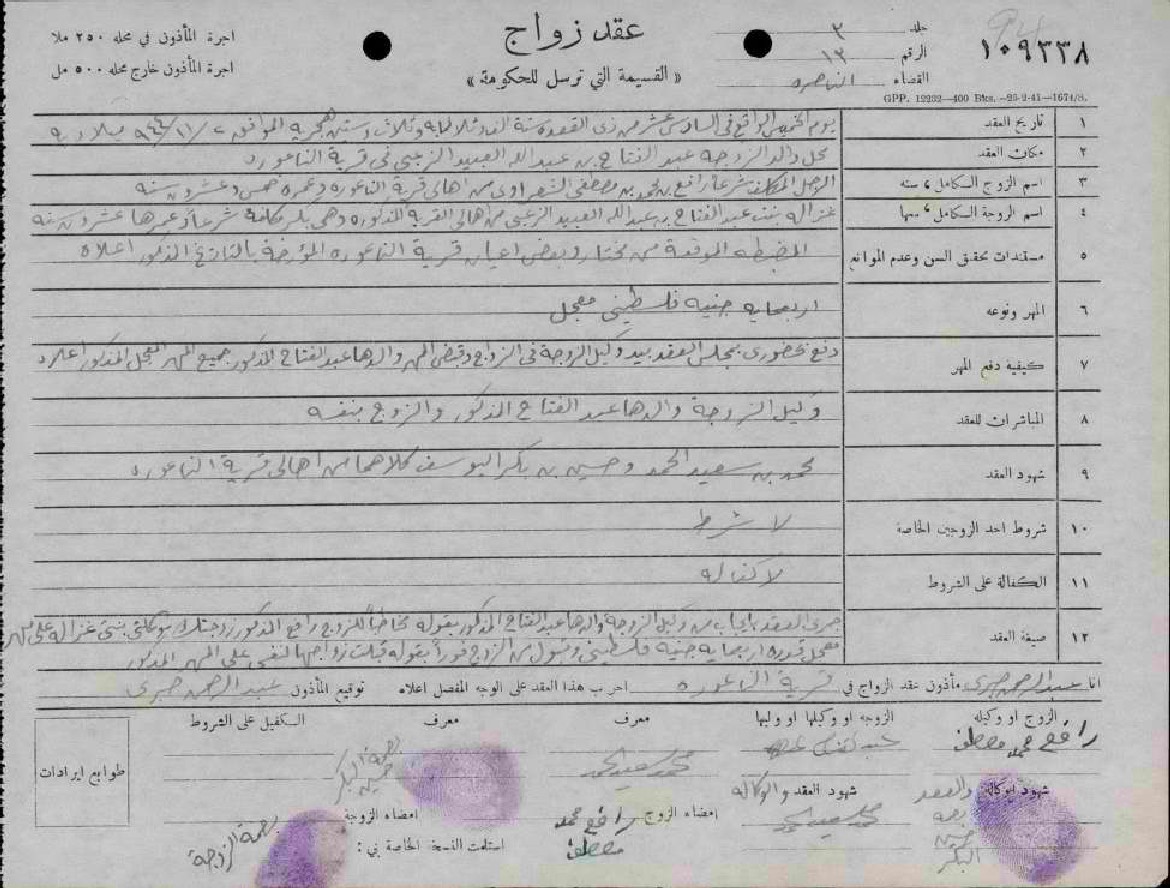 عقد زواج
« القسيمة التي ترسل للحكومة »
اجرة المأذون في محله ٢٥٠ ملا
اجرة المأذون خارج محله ٥٠٠ مل
جلد ٣
الرقم ١٣
القضاء الناصره
94
١٠٩٣٣٨
GPP. 12232—400 Bks.—25-2-41—1674/S.
١ تاريخ العقد يوم الخميس الواقع في السادس عشر من ذي القعدة سنة الف وثلاثماية وثلاث وستين هجريه الموافق ٢ / ١١ / ٩٤٤ ميلاديه
٢ مكان العقد محل والد الزوجة عبد الفتاح بن عبد الله العبيد الزعبي في قرية الناعوره
٣ اسم الزوج السكامل ، سنه الرجل المكلف شرعاً رافع بن محمد بن مصطفى الشعراوي من اهالي قرية الناعوره وعمره خمس وعشرون سنه
٤ اسم الزوجة السكامل ، سنها غزاله بنت عبد الفتاح بن عبد الله العبيد الزعبي من اهالي القرية المذكوره وهي بكر مكلفة شرعاً وعمرها عشرون سنه
٥ مستندات تحقق السن وعدم الموانع المضبطه الموقعة من مختار وبعض اعيان قرية الناعوره المؤرخة بالتاريخ المذكور اعلاه
٦ المهر ونوعه اربعمايه جنيه فلسطيني معجل
٧ كيفية دفع المهر دفع بحضوري بمجلس العقد بيد وكيل الزوجة في الزواج وقبض المهر والدها عبد الفتاح المذكور جميع المهر المعجل المذكور اعلاه
٨ المباشران للعقد وكيل الزوجة والدها عبد الفتاح المذكور والزوج بنفسه
٩ شهود العقد محمد بن سعيد الحمد وحسين بن بكر اليوسف كلاهما من اهالي قرية الناعوره
١٠ شروط احد الزوجين الخاصة لا شرط
١١ الكفالة على الشروط لا كفاله
١٢ صيغة العقد جرى العقد بايجاب من وكيل الزوجة والدها عبد الفتاح المذكور بقوله مخاطباً للزوج رافع المذكور زوجتك موكلتي بنتي غزاله على مهر
معجل قدره اربعمايه جنيه فلسطيني وقبول من الزوج فوراً بقوله قبلت زواجها لنفسي على المهر المذكور
انا عبد الرحمن صبري مأذون عقد الزواج في قرية الناعوره اجريت هذا العقد على الوجه المفصل اعلاه توقيع المأذون عبد الرحمن صبري
الزوج او وكيله
رافع محمد مصطفى
الزوجه او وكيلها او وليها
عبد الفتاح
معرف
محمد سعيد الحمد
معرف
بصمة البكر
حسين
السكفيل على الشروط
طوابع ايرادات
شهود الوكالة والعقد
بصمة
حسين
البكر
شهود العقد والوكاله
محمد سعيد الحمد
امضاء الزوج رافع محمد
مصطفى
امضاء الزوجة
بصمة الزوجة
استلمت النسخة الخاصة بي :